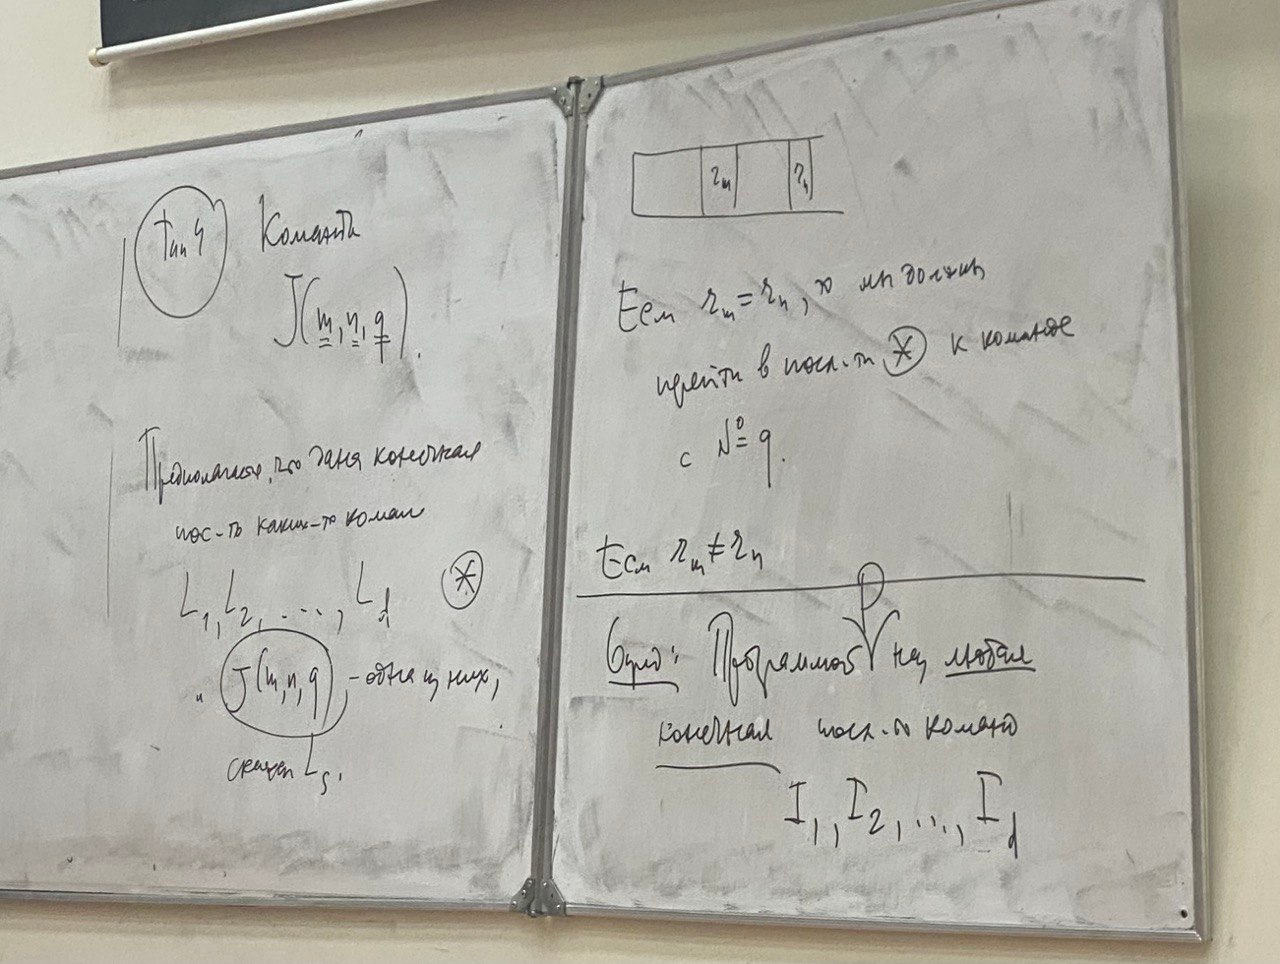 Тип 4 Команда
J(m, n, q).
Предполагаем, что дана конечная
пос-ть каких-то команд
L₁, L₂, ..., L_d (*)
и J(m, n, q) - одна из них,
скажем L_s.
r_m r_n
Если r_m = r_n, то мы должны
перейти в посл-ти (*) к команде
с № q.
Если r_m ≠ r_n
Опр: Программой P наз. любая
конечная посл-ть команд
I₁, I₂, ..., I_d